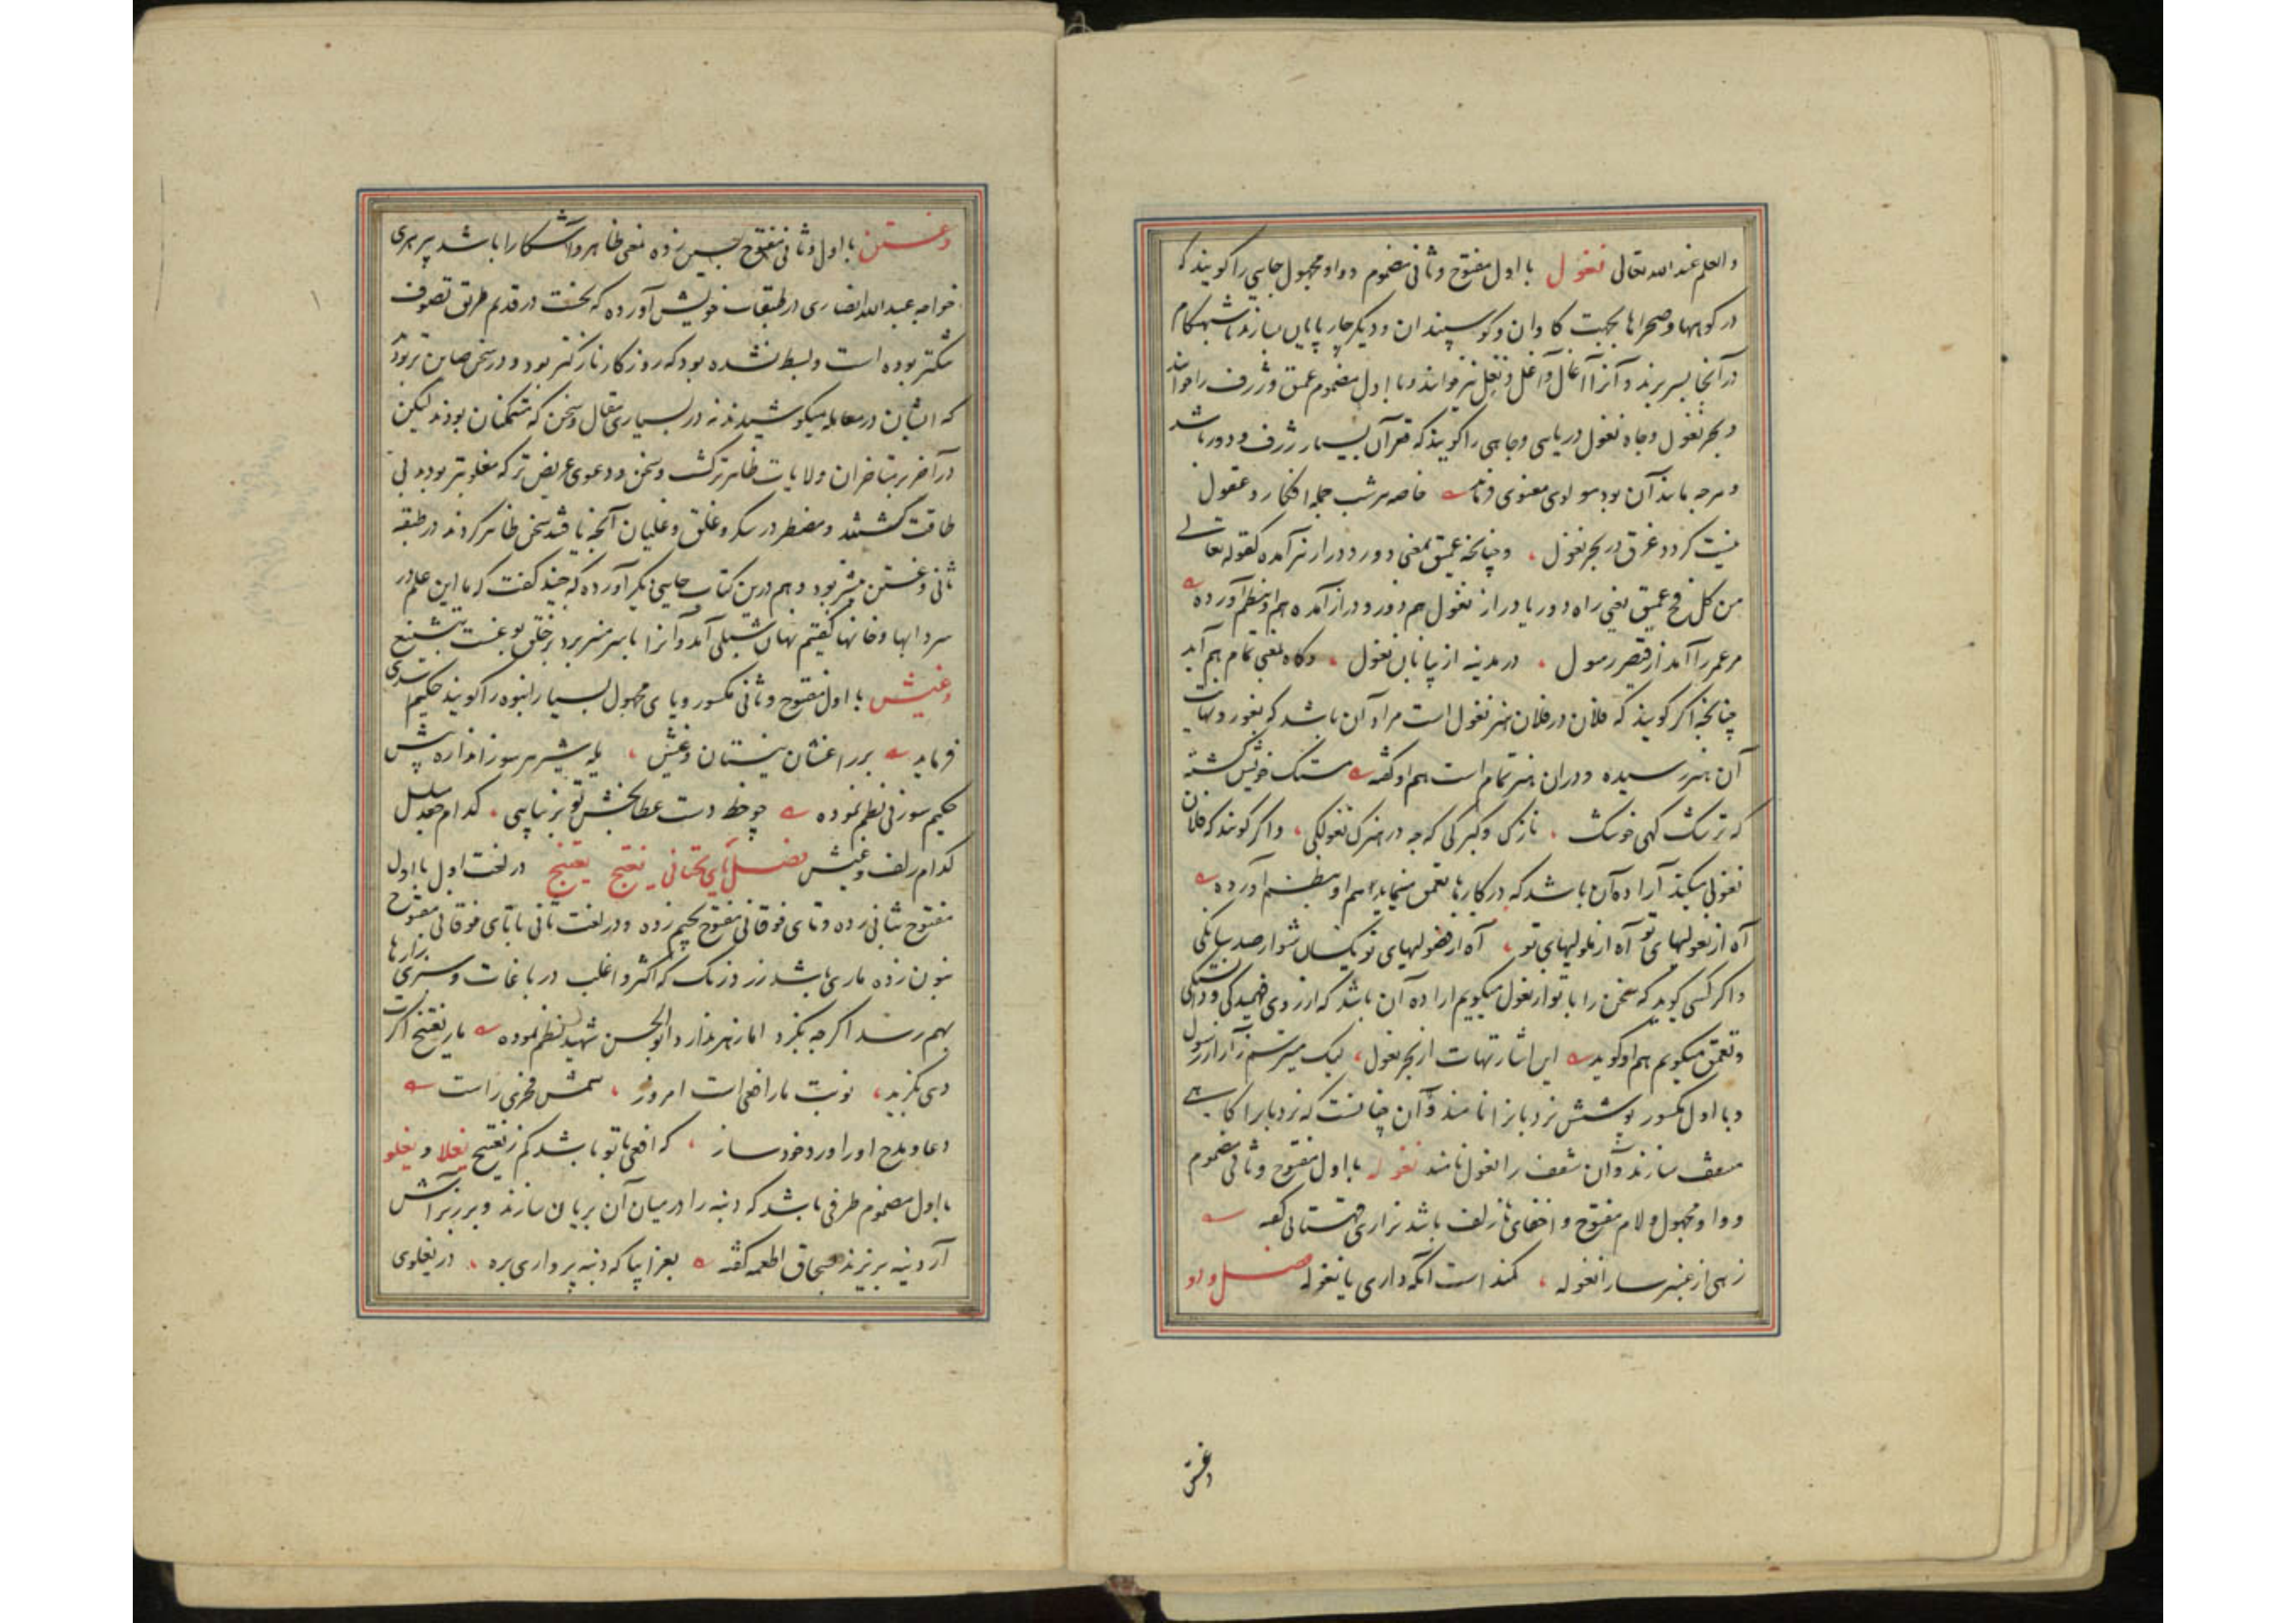 والعلم عند الله تعالی نغول با اول مفتوح و ثانی مضموم و واو مجهول جایی را کویند که
در کوهها و صحراها بجهت کاوان و کوسپندان و دیکر چارپایان سازند تا شبهنکام
در آنجا بسر برند و آنرا آغال و آغل و نغل نیز خوانند و با اول مضموم عمق و ژرف را خوانند
و بحر نغول و چاه نغول دریایی و چاهی را کویند که قعر آن بسیار ژرف و دور باشد
و هرچه مانند آن بود مولوی معنوی فرماید خاصه هر شب جمله افکار و عقول
نیست کردد غرق در بحر نغول ، و چنانچه عمیق بمعنی دور و دراز نیز آمده کقوله تعالی
من کل فج عمیق یعنی راه دور یا دراز نغول هم دور و دراز آمده هم او بنظم آورده
مر عمر را آمد از قیصر رسول ، در مدینه از بیابان نغول ، و کاه بمعنی تمام هم آید
چنانچه اکر کویند که فلان در فلان هنر نغول است مراد آن باشد که بغور و نهایت
آن هنر رسیده و دران هنر تمام است هم او کفته سنک خویش کشته
که ترسک کهی خوسک ، نازک و کبرکی که چه در هنرک نغولکی ، و اکر کویند که فلان
نغولی میکند اراده آن باشد که در کارها تعمق مینماید هم او بنظم آورده
آه از نغولیهای تو آه از ملولیهای تو ، آه از فضولیهای تو یکسان شو از صد سانکی
و اکر کسی کوید که سخن را با تو از نغول میکویم اراده آن باشد که از روی فهمیدکی و دانستکی
و تعمق میکویم هم او کوید این اشارتهاست از بحر نغول ، لیک میترسم ز آزار رسول
و با اول مکسور پوشش نردبانرا نامند و آن چنانست که نردبانرا کاهی
سقف سازند و آن سقف را نغول نامند نغوله با اول مفتوح و ثانی مضموم
و واو مجهول و لام مفتوح و اخفای ها زلف باشد نزاری قهستانی کفته
زهی از عنبر سارا نغوله ، کمند است آنکه داری یا نغوله فصل واو
وغستن
وغستن با اول و ثانی مفتوح بسین زده بمعنی ظاهر و آشکارا باشد پیر هری
خواجه عبدالله انصاری در طبقات خویش آورده که نخست در قدیم طریق تصوف
تنکتر بوده است و بسط نشده بود که روزکار نازکتر بود و در سخن صاین تر بودند
که ایشان در معامله میکوشیدند نه در بسیاری مقال و سخن که متمکنان بودند لیکن
در آخر بر متاخران ولایات ظاهرتر کشت و سخن و دعوی عریض تر که مغلوبتر بودند بی
طاقت کشتند و مضطر در سکر و غلق و غلیان آنچه یافتند سخن ظاهر کردند در طبقه
ثانی وغستن بیشتر بود و هم درین کتاب جایی دیکر آورده که جنید کفت که ما این علم در
سردابها و خانها کفتیم نهان شبلی آمد و آنرا با سر منبر برد بر خلق بوغست تشنیع
وغیش با اول مفتوح و ثانی مکسور و یای مجهول بسیار انبوه را کویند حکیم اسدی
فرماید برر اغشان نیستان وغیش ، یله شیر هر سو ز اندازه بیش
حکیم سوزنی نظم نموده چو خط دست عطابخش تو بزیبایی ، کدام جعد مسلسل
کدام زلف وغیش فصل یای تحتانی یغتنج یغتنج در لغت اول با اول
مفتوح بثانی زده و تای فوقانی مفتوح بجیم زده و در لغت ثانی با تای فوقانی مفتوح
بنون زده ماری باشد زرد رنک که اکثر و اغلب در باغات و سبزی زارها
بهم رسد اکرچه بکزد اما زهر ندارد ابوالحسن شهید نظم نموده مار یغتنج اکرت
دی بکزید ، نوبت مار افعی است امروز ، شمس فخری راست
دعا و مدح او را ورد خود ساز ، که افعی با تو باشد کم ز یغتنج یغلا و یغلو
با اول مضموم ظرفی باشد که دنبه را در میان آن بریان سازند و بر زبر آتش
آرد نیز بریزند بسحاق اطعمه کفته بغرا بیا که دنبه پرواری بره ، در یغلوی